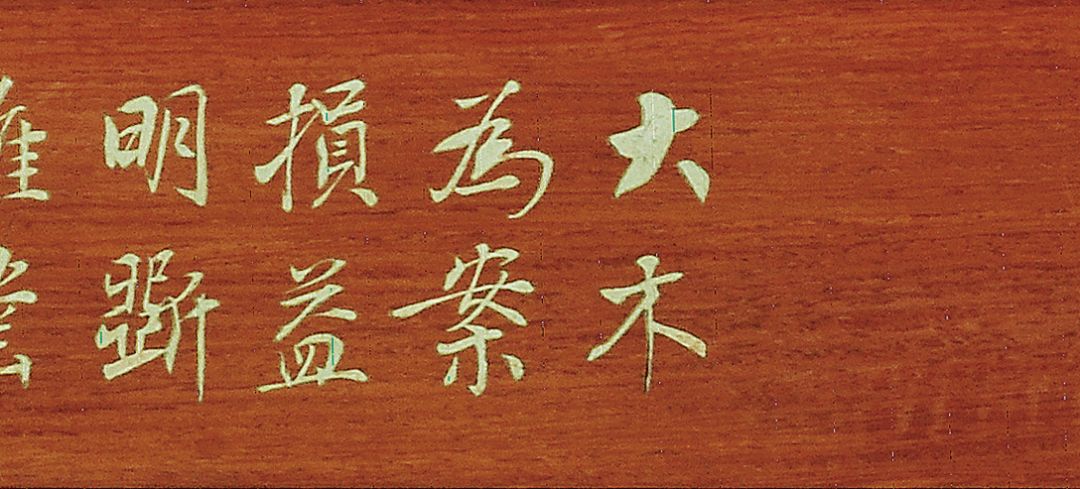 大木
為案
損益
明斷